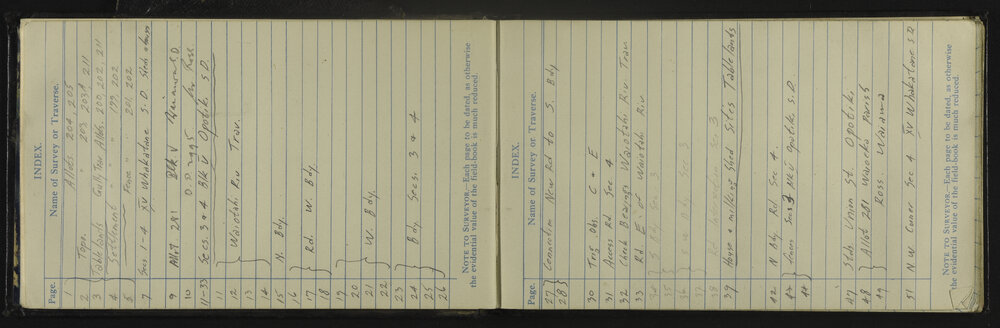 INDEX.
Page. Name of Survey or Traverse.
1 Allots 204, 205
2 Topo. " 203 203A 211
3 Tablelands Gully Trav Allots. 200, 202, 211
4 Settlement " " 199 202
5 " Fence " 201 202
7 Secs 1-4 XV Whakatane S.D.
9 Allot 281 Blk V Waimana S.D.
10 D.P. 2995 for Rose
11-33 Secs. 3 & 4 Blk V Opotiki S.D.
11
12 Waiotahi Riv Trav.
13
14
15 N. Bdy.
16
17 Rd. W Bdy
18
19
20
21 W. Bdy.
22
23
24 Bdy Secs. 3 & 4
25
26
NOTE TO SURVEYOR.—Each page to be dated, as otherwise
the evidential value of the field-book is much reduced.
INDEX.
Page. Name of Survey or Traverse.
27 Connection New Rd to S. Bdy
28
30 Trig Obs. C & E
31 Access Rd. Sec 4
32 Check Bearings Waiotahi Riv. Trav
33 Rd. E of Waiotahi Riv
34 S Bdy Sec 3
35
36 Bdy Sec 3
37
38 Sec. 3
39 House & milking Shed Sites Tablelands
42 N Bdy Rd Sec 4.
43 Secs 3 Blk V Opotiki S.D.
44
47 Stab Union St. Opotiki
48 Allot 281 Waioeka Parish
49 Ross.
51 N W Corner Sec 4 XV Whakatane S.D
NOTE TO SURVEYOR.—Each page to be dated, as otherwise
the evidential value of the field-book is much reduced.